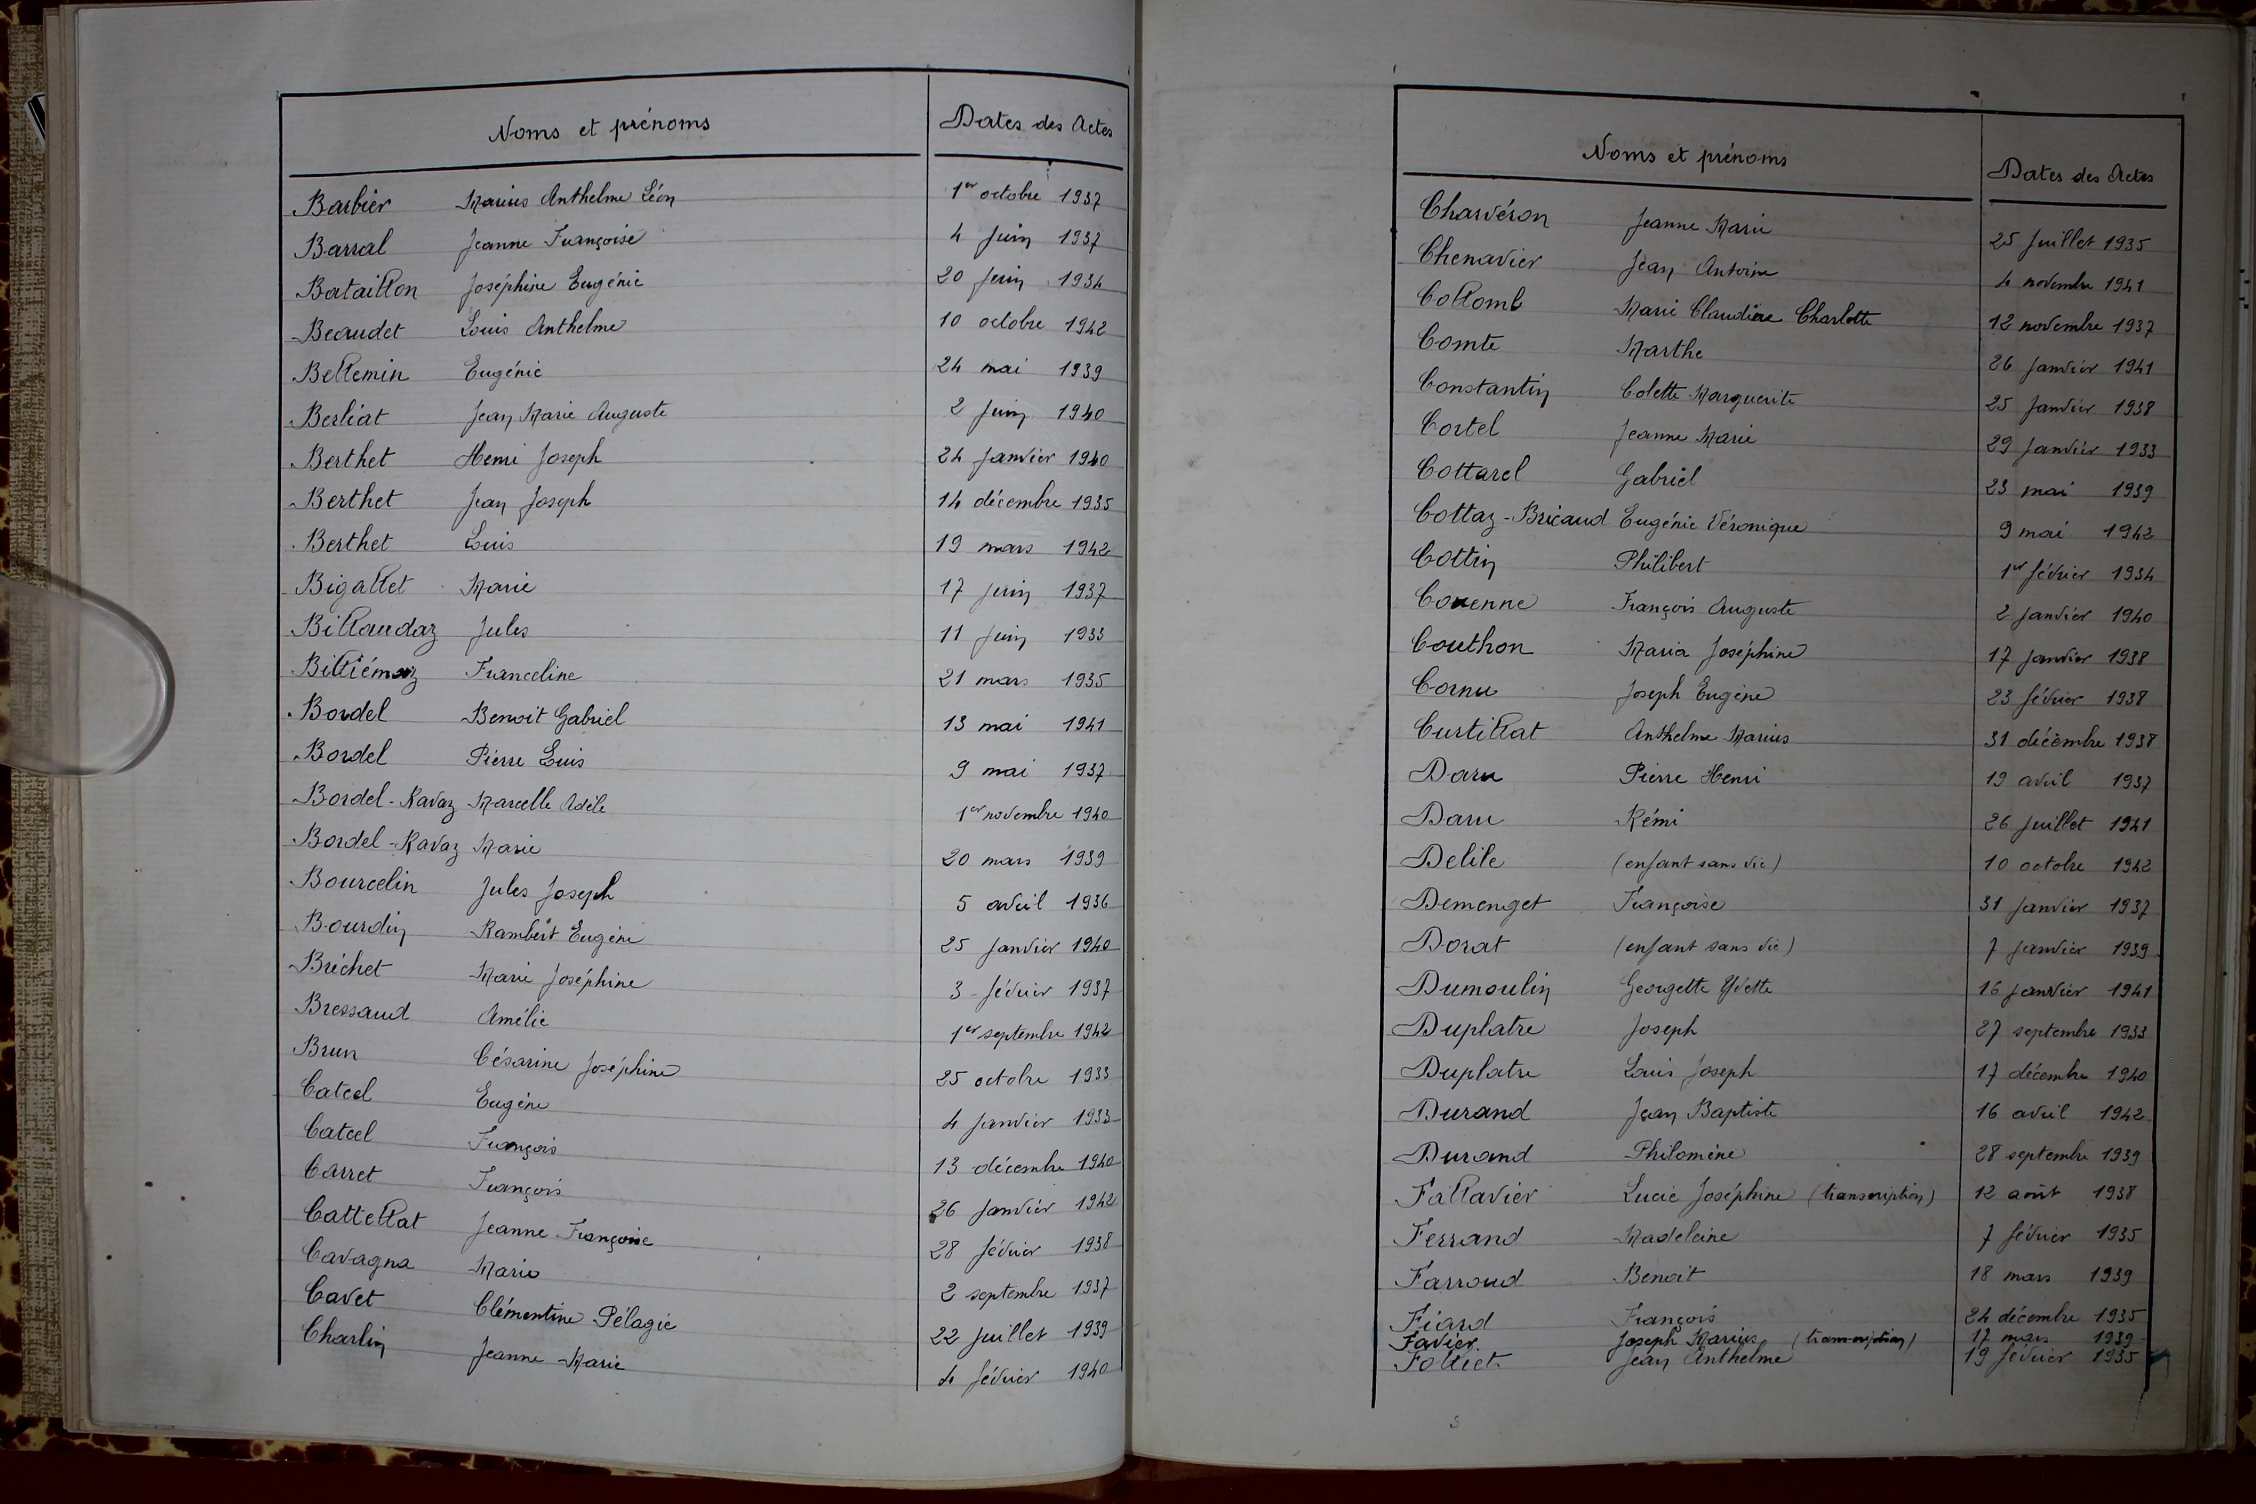 Noms et prénoms Dates des Actes
Barbier Marius Anthelme Léon 1er octobre 1937
Barral Jeanne Françoise 4 juin 1937
Bataillon Joséphine Eugénie 20 juin 1934
Beaudet Louis Anthelme 10 octobre 1942
Bellemin Eugénie 24 mai 1939
Berliat Jean Marie Auguste 2 juin 1940
Berthet Henri Joseph 24 janvier 1940
Berthet Jean Joseph 14 décembre 1935
Berthet Louis 19 mars 1942
Bigallet Marie 17 juin 1937
Billaudaz Jules 11 juin 1933
Billiémaz Franceline 21 mars 1935
Bordel Benoit Gabriel 13 mai 1941
Bordel Pierre Louis 9 mai 1937
Bordel-Ravaz Marcelle Adèle 1er novembre 1940
Bordel-Ravaz Marie 20 mars 1939
Bourcelin Jules Joseph 5 avril 1936
Bourdin Rambert Eugène 25 janvier 1940
Bréchet Marie Joséphine 3 février 1937
Bressaud Amélie 1er septembre 1942
Brun Césarine Joséphine 25 octobre 1933
Catcel Eugène 4 janvier 1933
Catcel François 13 décembre 1940
Carret François 26 janvier 1942
Cattellat Jeanne Françoise 28 février 1938
Cavagna Mario 2 septembre 1937
Cavet Clémentine Pélagie 22 juillet 1939
Charlin Jeanne Marie 4 février 1940
Noms et prénoms Dates des Actes
Charvéron Jeanne Marie 25 juillet 1935
Chenavier Jean Antoine 4 novembre 1941
Collomb Marie Claudine Charlotte 12 novembre 1937
Comte Marthe 26 janvier 1941
Constantin Colette Marguerite 25 janvier 1938
Cortel Jeanne Marie 29 janvier 1933
Cottarel Gabriel 23 mai 1939
Cottaz-Bricaud Eugénie Véronique 9 mai 1942
Cottin Philibert 1er février 1934
Couenne François Auguste 2 janvier 1940
Couthon Maria Joséphine 17 janvier 1938
Cornu Joseph Eugène 23 février 1938
Curtillat Anthelme Marius 31 décembre 1938
Daru Pierre Henri 19 avril 1937
Daru Rémi 26 juillet 1941
Delile (enfant sans vie) 10 octobre 1942
Demenget Françoise 31 janvier 1937
Dorat (enfant sans vie) 7 janvier 1939
Dumoulin Georgette Yvette 16 janvier 1941
Duplatre Joseph 27 septembre 1933
Duplatre Louis Joseph 17 décembre 1940
Durand Jean Baptiste 16 avril 1942
Durand Philomène 28 septembre 1939
Fallavier Lucie Joséphine (transcription) 12 août 1938
Ferrand Madeleine 7 février 1935
Farroud Benoit 18 mars 1939
Fiard François 24 décembre 1935
Favier Joseph Marius (transcription) 17 mars 1939
Folliet Jean Anthelme 19 février 1935
3